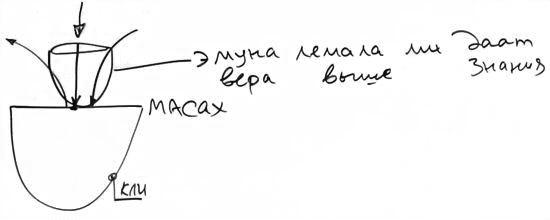 эмуна лемала ми Даат
вера выше знания
МАСАХ
КЛИ